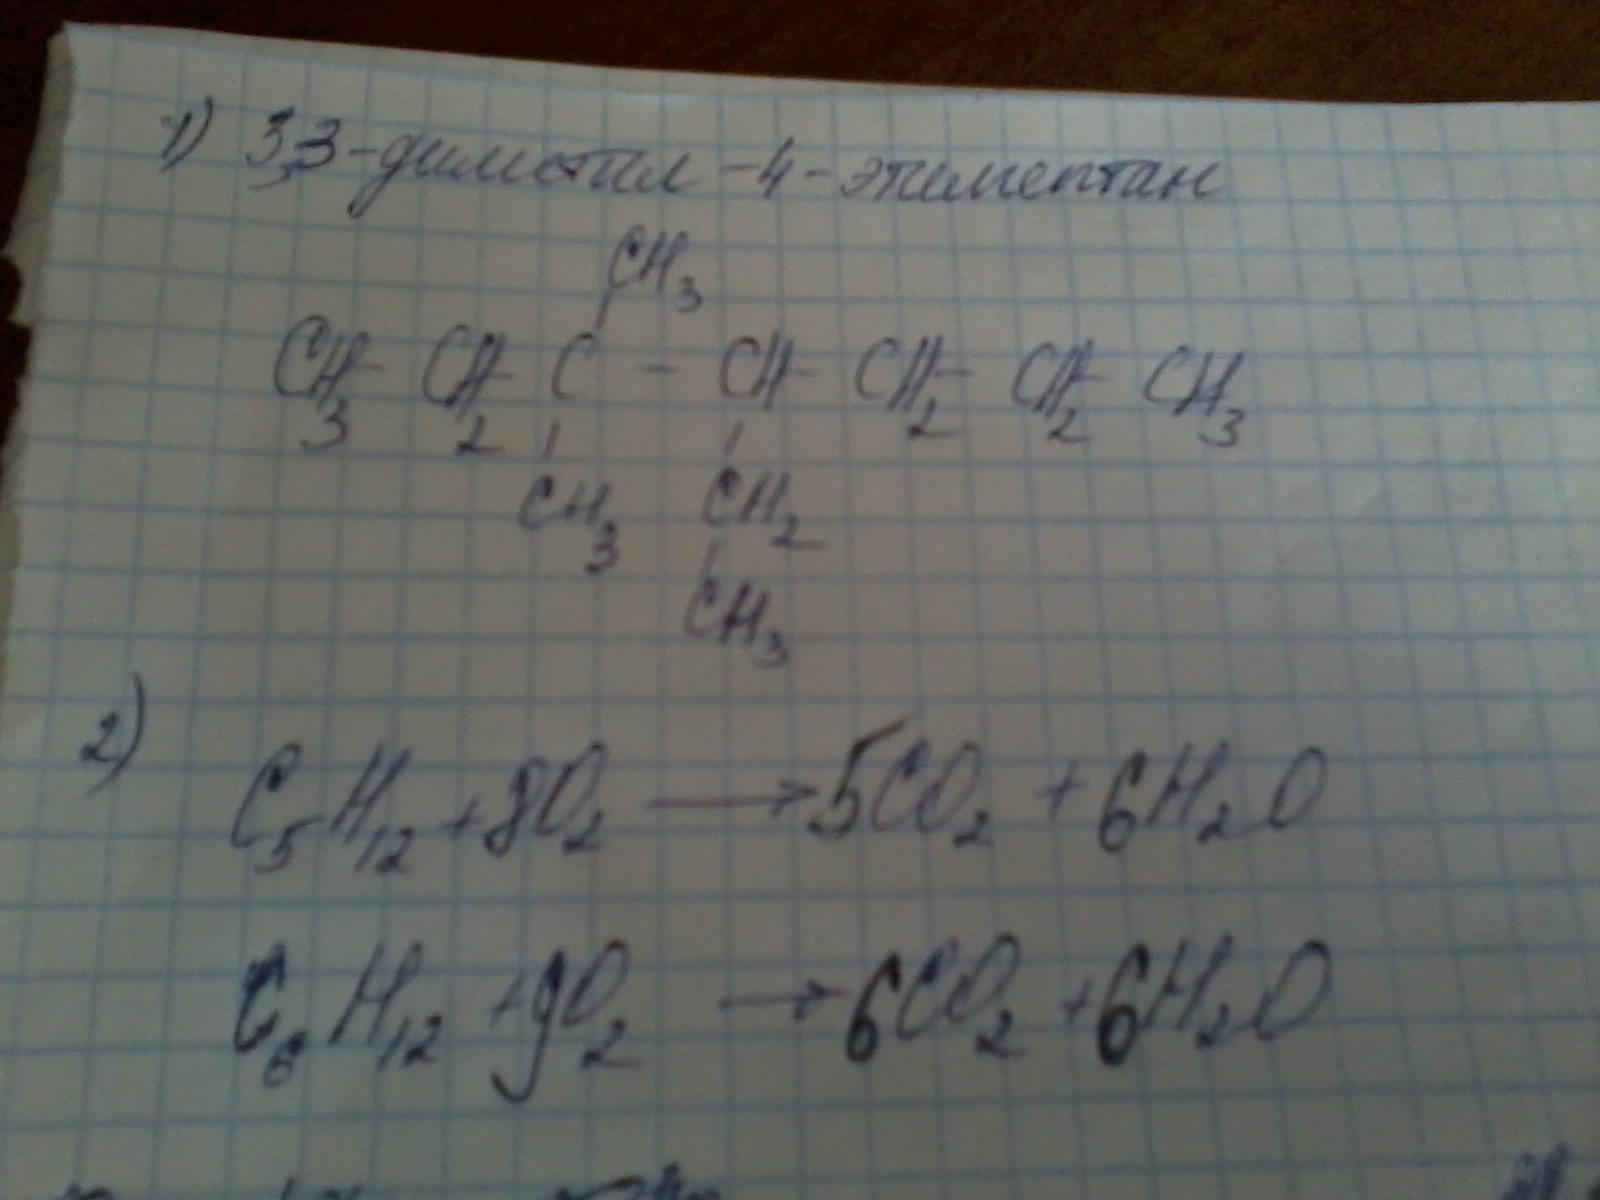 1) 3,3-диметил-4-этилгептан
CH3
CH3-CH2-C-CH-CH2-CH2-CH3
CH3 CH2
CH3
2)
C5H12+8O2→5CO2+6H2O
C6H12+9O2→6CO2+6H2O